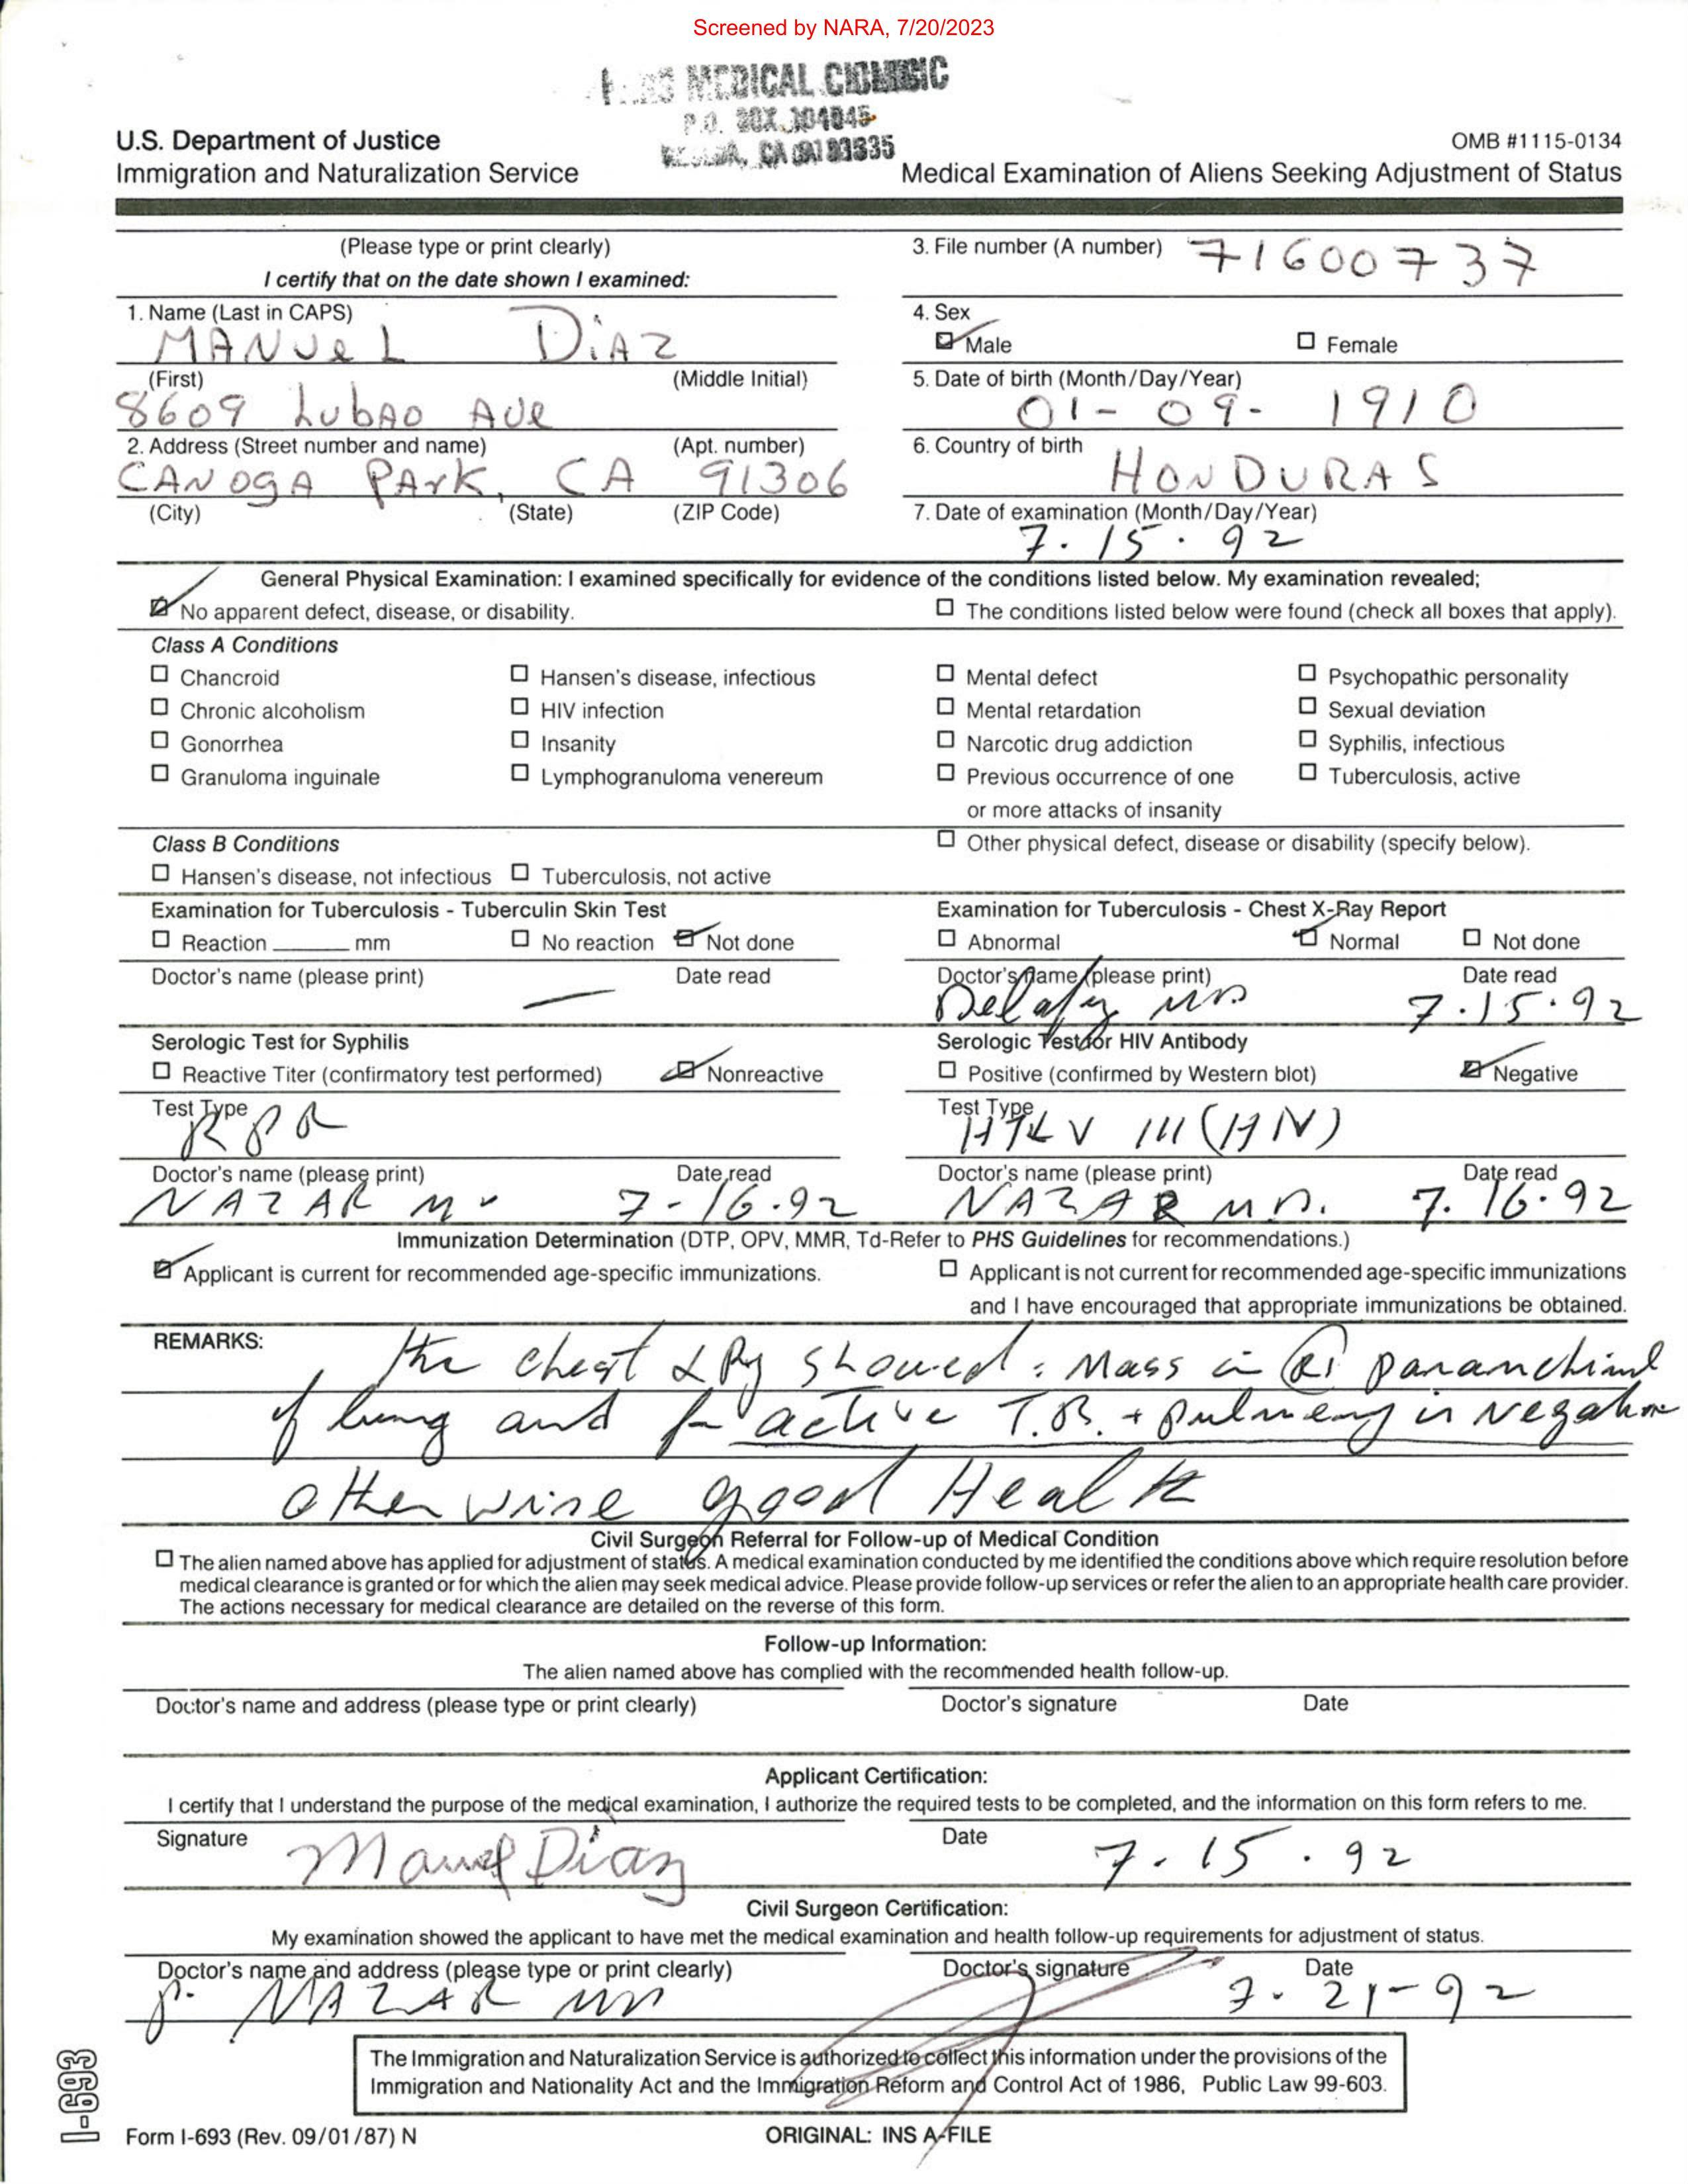 Screened by NARA, 7/20/2023
MEDICAL
P.O. BOX
CA
U.S. Department of Justice
Immigration and Naturalization Service
OMB #1115-0134
Medical Examination of Aliens Seeking Adjustment of Status
(Please type or print clearly)
I certify that on the date shown I examined:
3. File number (A number) 71600737
1. Name (Last in CAPS)
MANUeL DiAZ
(First) (Middle Initial)
4. Sex
Male Female
8609 LubAO AVe
2. Address (Street number and name) (Apt. number)
5. Date of birth (Month/Day/Year)
01-09-1910
CANOGA PArK, CA 91306
(City) (State) (ZIP Code)
6. Country of birth
HONDURAS
7. Date of examination (Month/Day/Year)
7.15.92
General Physical Examination: I examined specifically for evidence of the conditions listed below. My examination revealed;
No apparent defect, disease, or disability. The conditions listed below were found (check all boxes that apply).
Class A Conditions
Chancroid Hansen's disease, infectious Mental defect Psychopathic personality
Chronic alcoholism HIV infection Mental retardation Sexual deviation
Gonorrhea Insanity Narcotic drug addiction Syphilis, infectious
Granuloma inguinale Lymphogranuloma venereum Previous occurrence of one Tuberculosis, active
or more attacks of insanity
Class B Conditions Other physical defect, disease or disability (specify below).
Hansen's disease, not infectious Tuberculosis, not active
Examination for Tuberculosis - Tuberculin Skin Test
Reaction ______ mm No reaction Not done
Doctor's name (please print) Date read
Examination for Tuberculosis - Chest X-Ray Report
Abnormal Normal Not done
Doctor's name (please print) Date read
MD 7.15.92
Serologic Test for Syphilis
Reactive Titer (confirmatory test performed) Nonreactive
Test Type RPR
Doctor's name (please print) Date read
NAZAR M 7-16.92
Serologic Test for HIV Antibody
Positive (confirmed by Western blot) Negative
Test Type HTLV III (HIV)
Doctor's name (please print) Date read
NAZAR M.D. 7.16.92
Immunization Determination (DTP, OPV, MMR, Td-Refer to PHS Guidelines for recommendations.)
Applicant is current for recommended age-specific immunizations. Applicant is not current for recommended age-specific immunizations
and I have encouraged that appropriate immunizations be obtained.
REMARKS: the chest X Ray showed: Mass in (R) paranchimal
of lung and for active T.B. + pulmenary is Negative
otherwise good Health
Civil Surgeon Referral for Follow-up of Medical Condition
The alien named above has applied for adjustment of status. A medical examination conducted by me identified the conditions above which require resolution before
medical clearance is granted or for which the alien may seek medical advice. Please provide follow-up services or refer the alien to an appropriate health care provider.
The actions necessary for medical clearance are detailed on the reverse of this form.
Follow-up Information:
The alien named above has complied with the recommended health follow-up.
Doctor's name and address (please type or print clearly) Doctor's signature Date
Applicant Certification:
I certify that I understand the purpose of the medical examination, I authorize the required tests to be completed, and the information on this form refers to me.
Signature Manuel Diaz Date 7.15.92
Civil Surgeon Certification:
My examination showed the applicant to have met the medical examination and health follow-up requirements for adjustment of status.
Doctor's name and address (please type or print clearly) Doctor's signature Date
P. NAZAR MD 7.21-92
The Immigration and Naturalization Service is authorized to collect this information under the provisions of the
Immigration and Nationality Act and the Immigration Reform and Control Act of 1986, Public Law 99-603.
I-693
Form I-693 (Rev. 09/01/87) N
ORIGINAL: INS A-FILE